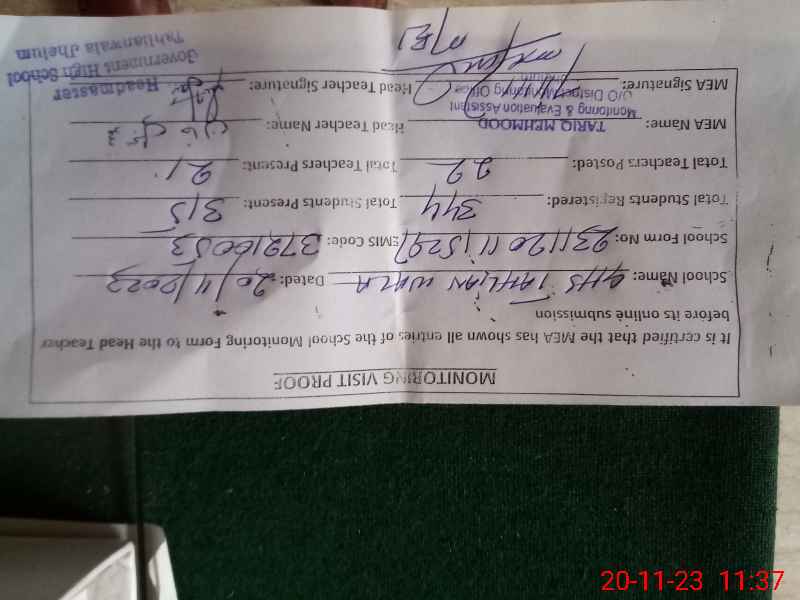 MONITORING VISIT PROOF
It is certified that the MEA has shown all entries of the School Monitoring Form to the Head Teacher
before its online submission
School Name: GHS TAHLIAN WALA Dated: 20/11/2023
School Form No: 2311201115297 EMIS Code: 37210053
Total Students Registered: 344 Total Students Present: 315
Total Teachers Posted: 22 Total Teachers Present: 21
MEA Name: TARIQ MEHMOOD Head Teacher Name:
Monitoring & Evaluation Assistant
O/O District Monitoring Office
Jhelum
MEA Signature: Head Teacher Signature:
Headmaster
Government High School
Tahlianwala Jhelum
20-11-23 11:37